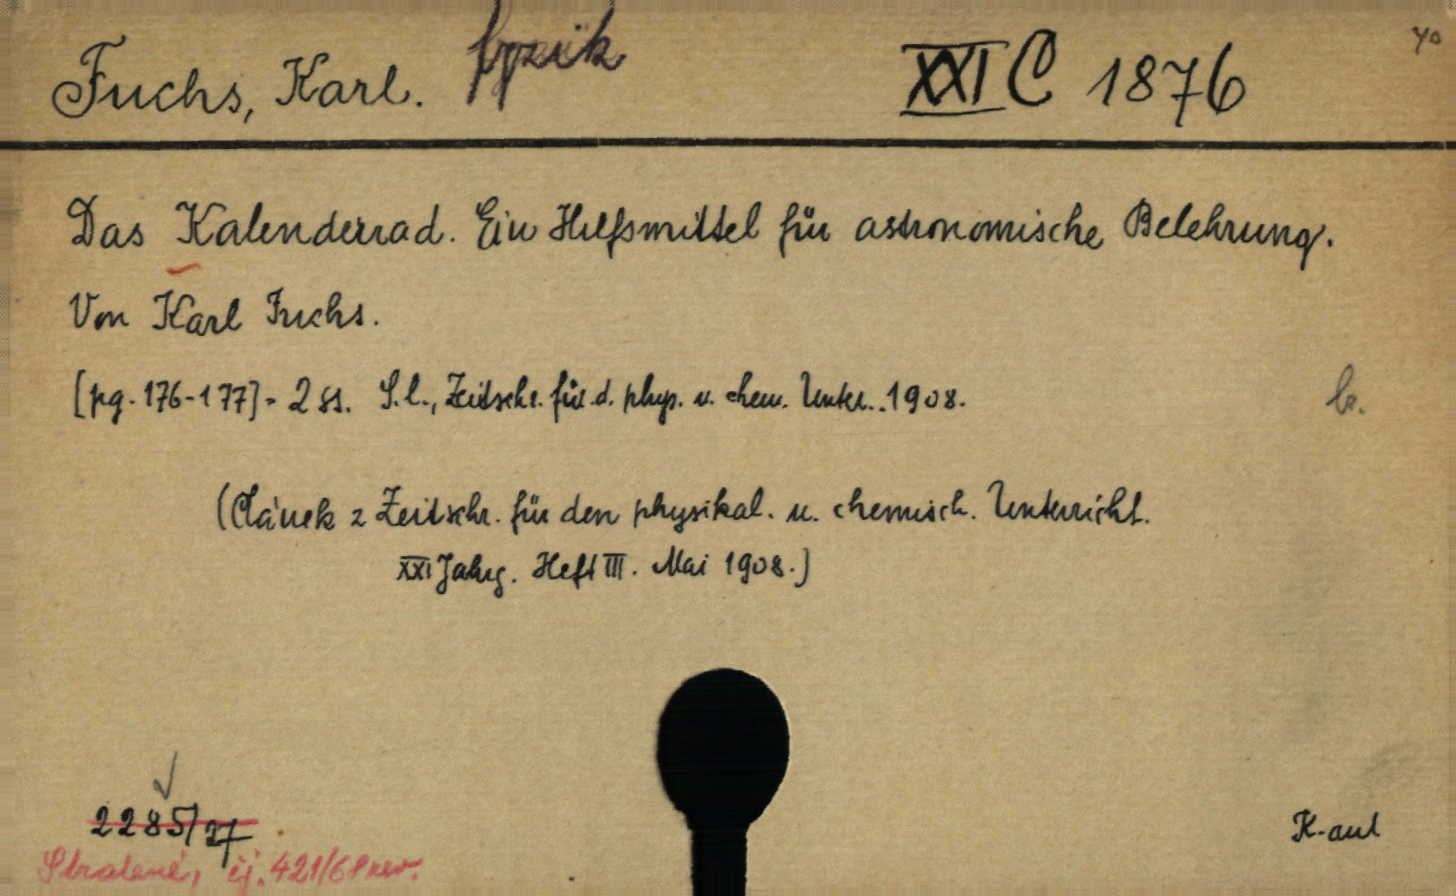 Fuchs, Karl. fyzik XXI C 1876 40
Das Kalenderrad. Ein Hilfsmittel für astronomische Belehrung.
Von Karl Fuchs.
[pg. 176-177] = 2 ss. S. l., Zeitschr. für d. phys. u. chem. Unter.. 1908. br.
(Článek z Zeitschr. für den physikal. u. chemisch. Unterricht.
XXI Jahrg. Heft III. Mai 1908.)
2285/27 K-aut
Stralené, čj. 421/61rev.